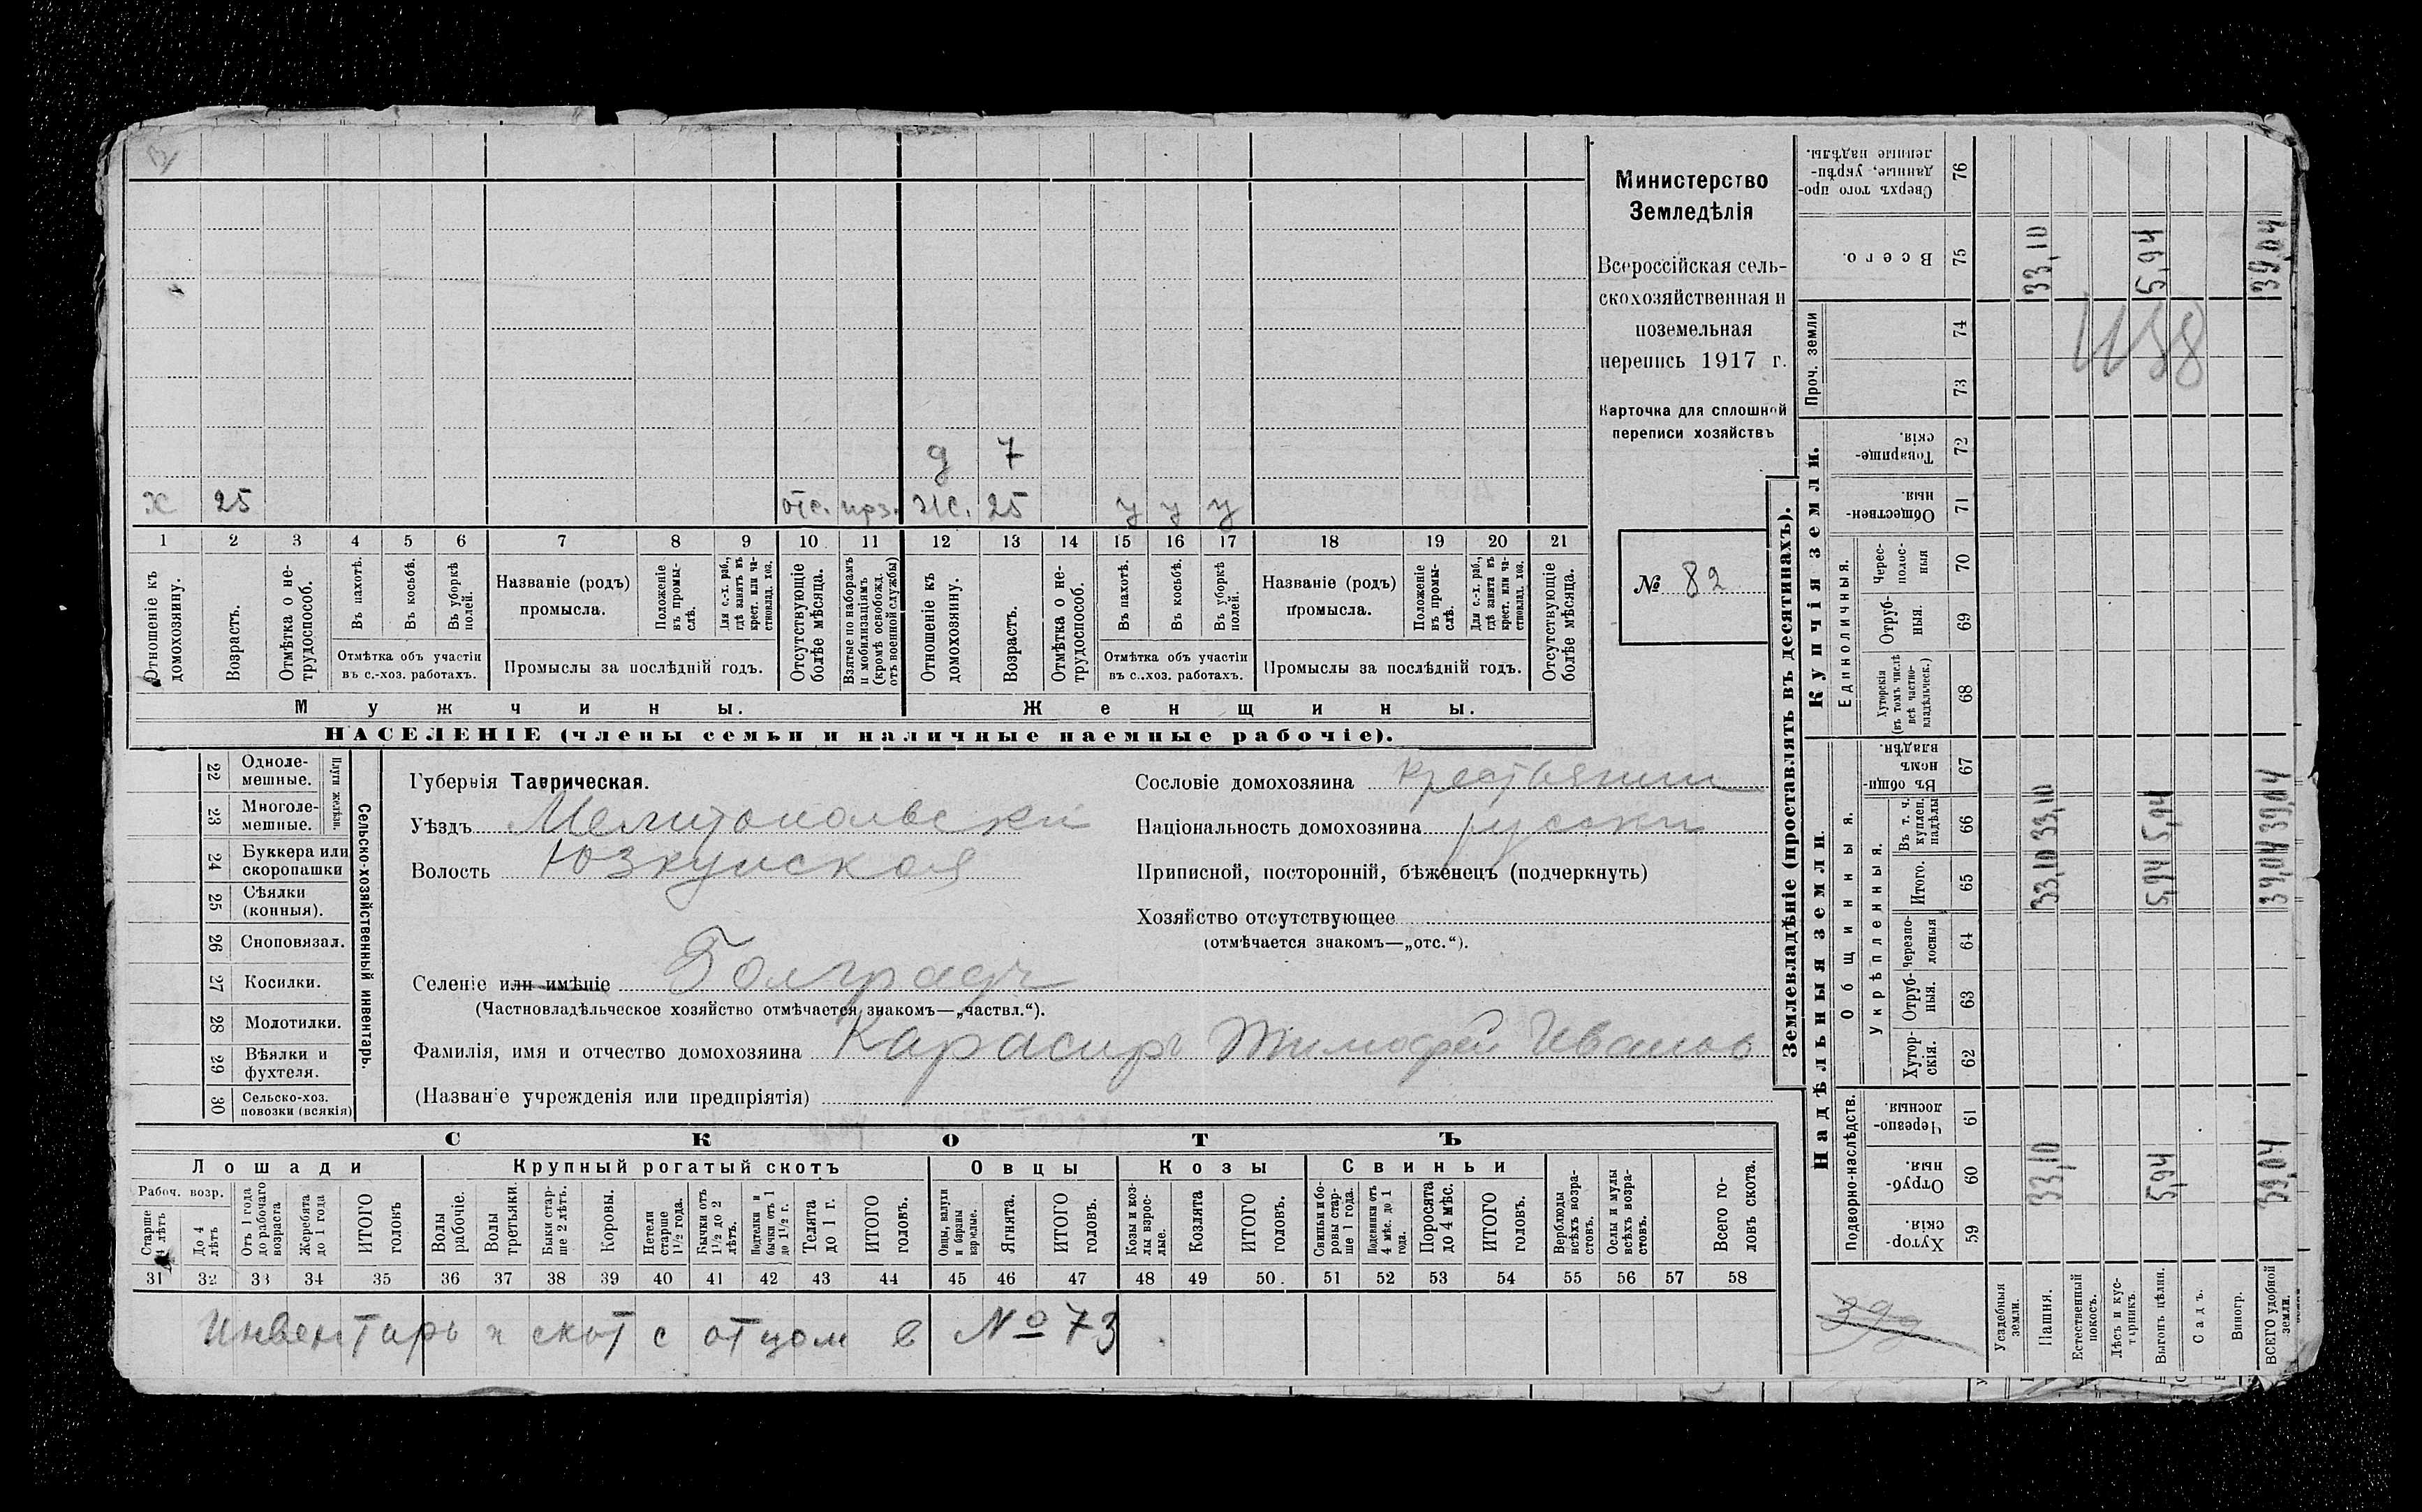 Министерство
Земледѣлія
Всероссійская сель-
скохозяйственная и
поземельная
перепись 1917 г.
Карточка для сплошной
переписи хозяйствъ
№ 82
д 7
х 25 отс. прз. ж. 25 у у у
1 2 3 4 5 6 7 8 9 10 11 12 13 14 15 16 17 18 19 20 21
Отношеніе къ домохозяину.
Возрастъ.
Отмѣтка о не-трудоспособ.
Въ пахотѣ.
Въ косьбѣ.
Въ уборкѣ полей.
Отмѣтка объ участіи
въ с.-хоз. работахъ.
Названіе (родъ)
промысла.
Положеніе въ промы-слѣ.
Для с.-х. раб., гдѣ занятъ въ крест. или ча-стновлад. хоз.
Промыслы за послѣдній годъ.
Отсутствующіе болѣе мѣсяца.
Взятые по наборамъ и мобилизаціямъ (кромѣ освобожд. отъ военной службы)
Отношеніе къ домохозяину.
Возрастъ.
Отмѣтка о не-трудоспособ.
Въ пахотѣ.
Въ косьбѣ.
Въ уборкѣ полей.
Отмѣтка объ участіи
въ с.-хоз. работахъ.
Названіе (родъ)
промысла.
Положеніе въ промы-слѣ.
Для с.-х. раб., гдѣ занята въ крест. или ча-стновлад. хоз.
Промыслы за послѣдній годъ.
Отсутствующіе болѣе мѣсяца.
Мужчины. Женщины.
НАСЕЛЕНІЕ (члены семьи и наличные наемные рабочіе).
22 Одноле-мешные.
23 Многоле-мешные.
Плуги желѣзн.
24 Буккера или скоропашки
25 Сѣялки (конныя).
26 Сноповязал.
27 Косилки.
28 Молотилки.
29 Вѣялки и фухтеля.
30 Сельско-хоз. повозки (всякія)
Сельско-хозяйственный инвентарь.
Губернія Таврическая.
Уѣздъ Мелитопольски
Волость Юзкуйская
Селеніе или имѣніе Болградъ
(Частновладѣльческое хозяйство отмѣчается знакомъ—„частвл.“).
Фамилія, имя и отчество домохозяина Карасиръ Тимофей Иванов
(Названіе учрежденія или предпріятія)
Сословіе домохозяина крестьянин
Національность домохозяина русски
Приписной, посторонній, бѣженецъ (подчеркнуть)
Хозяйство отсутствующее
(отмѣчается знакомъ—„отс.“).
СКОТЪ
Лошади Крупный рогатый скотъ Овцы Козы Свиньи
Рабоч. возр.
Старше 4 лѣтъ
До 4 лѣтъ
Отъ 1 года до рабочаго возраста
Жеребята до 1 года
ИТОГО головъ
Волы рабочіе.
Волы третьяки.
Быки стар-ше 2 лѣтъ.
Коровы.
Нетели старше 1 1/2 года.
Бычки отъ 1 1/2 до 2 лѣтъ.
Подтелки и бычки отъ 1 до 1 1/2 г.
Телята до 1 г.
ИТОГО головъ.
Овцы, валухи и бараны взрослые.
Ягнята.
ИТОГО головъ.
Козы и коз-лы взрос-лые.
Козлята
ИТОГО головъ.
Свиньи и бо-ровы стар-ше 1 года.
Подсвинки отъ 4 мѣс. до 1 года.
Поросята до 4 мѣс.
ИТОГО головъ.
Верблюды всѣхъ возра-стовъ.
Ослы и мулы всѣхъ возра-стовъ.
Всего го-ловъ скота.
31 32 33 34 35 36 37 38 39 40 41 42 43 44 45 46 47 48 49 50. 51 52 53 54 55 56 57 58
Инвентарь и скот с отцом в № 73.
Землевладѣніе (проставлять въ десятинахъ).
Купчія земли.
Надѣльныя земли.
Проч. земли
Единоличныя.
Общинныя.
Укрѣпленныя.
Подворно-наслѣдств.
76 Сверхъ того про-данные, укрѣп-ленные надѣлы.
75 Всего. 33,10 5,94 39,04
74
73
1158
72 Товарище-скія.
71 Обществен-ныя.
70 Черес-полос-ныя
69 Отруб-ныя.
68 Хуторскія (въ томъ числѣ всѣ частно-владѣльческ.)
67 Въ общин-номъ владѣн.
66 Въ т. ч. куплен. надѣлы 33,10 5,94 39,04
65 Итого. 33,10 5,94 39,04
64 черезпо-лосныя
63 Отруб-ныя.
62 Хутор-скія.
61 Черезпо-лосныя.
60 Отруб-ныя. 33,10 5,94 39,04
59 Хутор-скія.
Усадебныя земли.
Пашня.
Естественный покосъ.
Лѣсъ и кус-тарникъ.
Выгонъ цѣлин.
Садъ.
Виногр.
ВСЕГО удобной земли.